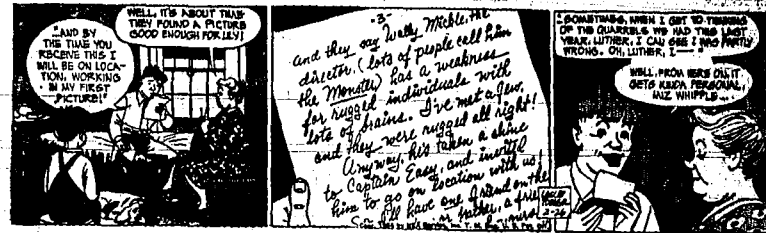 "AND BY
THE TIME YOU
RECEIVE THIS I
WILL BE ON LOCA-
TION, WORKING
IN MY FIRST
PICTURE!"
WELL, IT'S ABOUT TIME
THEY FOUND A PICTURE
GOOD ENOUGH FOR LILY!
"3"
and they say Wally Mickle, the
director, (lots of people call him
the Monster) has a weakness
for rugged individuals with
lots of brains. I've met a few,
and they were rugged all right!
Anyway, he's taken a shine
to Captain Easy, and
him to go on location with us!
I'll have one friend on the
rather, a
"SOMETIMES, WHEN I GET TO THINKING
OF THE QUARRELS WE HAD THIS LAST
YEAR, LUTHER, I CAN SEE I WAS PARTLY
WRONG. OH, LUTHER, I—"
WELL, FROM HERE ON, IT
GETS KINDA PERSONAL,
MIZ WHIPPLE...
LESLIE
TURNER
2-26